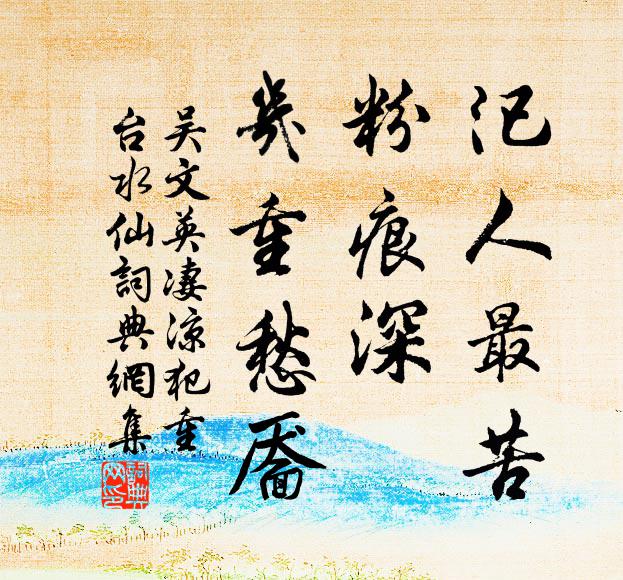 汜人最苦
粉痕深
幾重愁靨
吳文英淒涼犯重
台水仙詞典網集